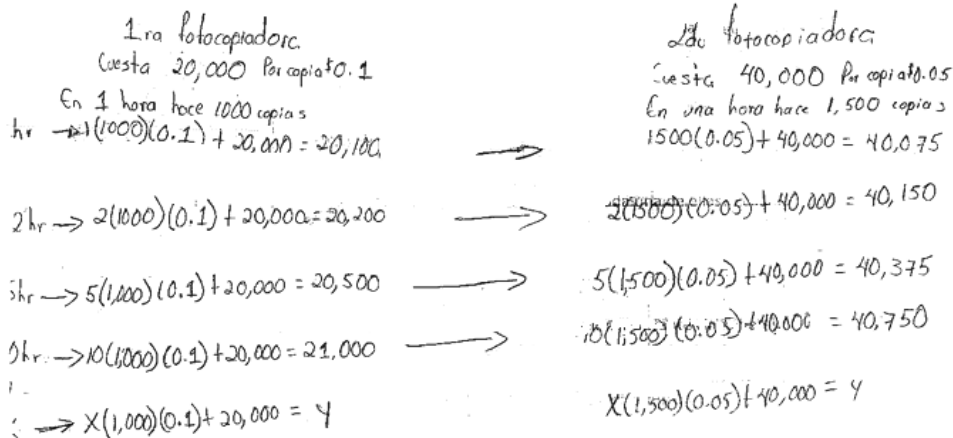 1ra fotocopiadora
Cuesta 20,000 Por copia $0.1
En 1 hora hace 1000 copias
hr → 1(1000)(0.1) + 20,000 = 20,100
2hr → 2(1000)(0.1) + 20,000 = 20,200
5hr → 5(1,000)(0.1) + 20,000 = 20,500
0hr → 10(1,000)(0.1) + 20,000 = 21,000
→ X(1,000)(0.1) + 20,000 = y
2da fotocopiadora
Cuesta 40,000 Por copia $0.05
En una hora hace 1,500 copias
→ 1500(0.05) + 40,000 = 40,075
→ 2(1500)(0.05) + 40,000 = 40,150
→ 5(1,500)(0.05) + 40,000 = 40,375
→ 10(1,500)(0.05) + 40,000 = 40,750
X(1,500)(0.05) + 40,000 = y